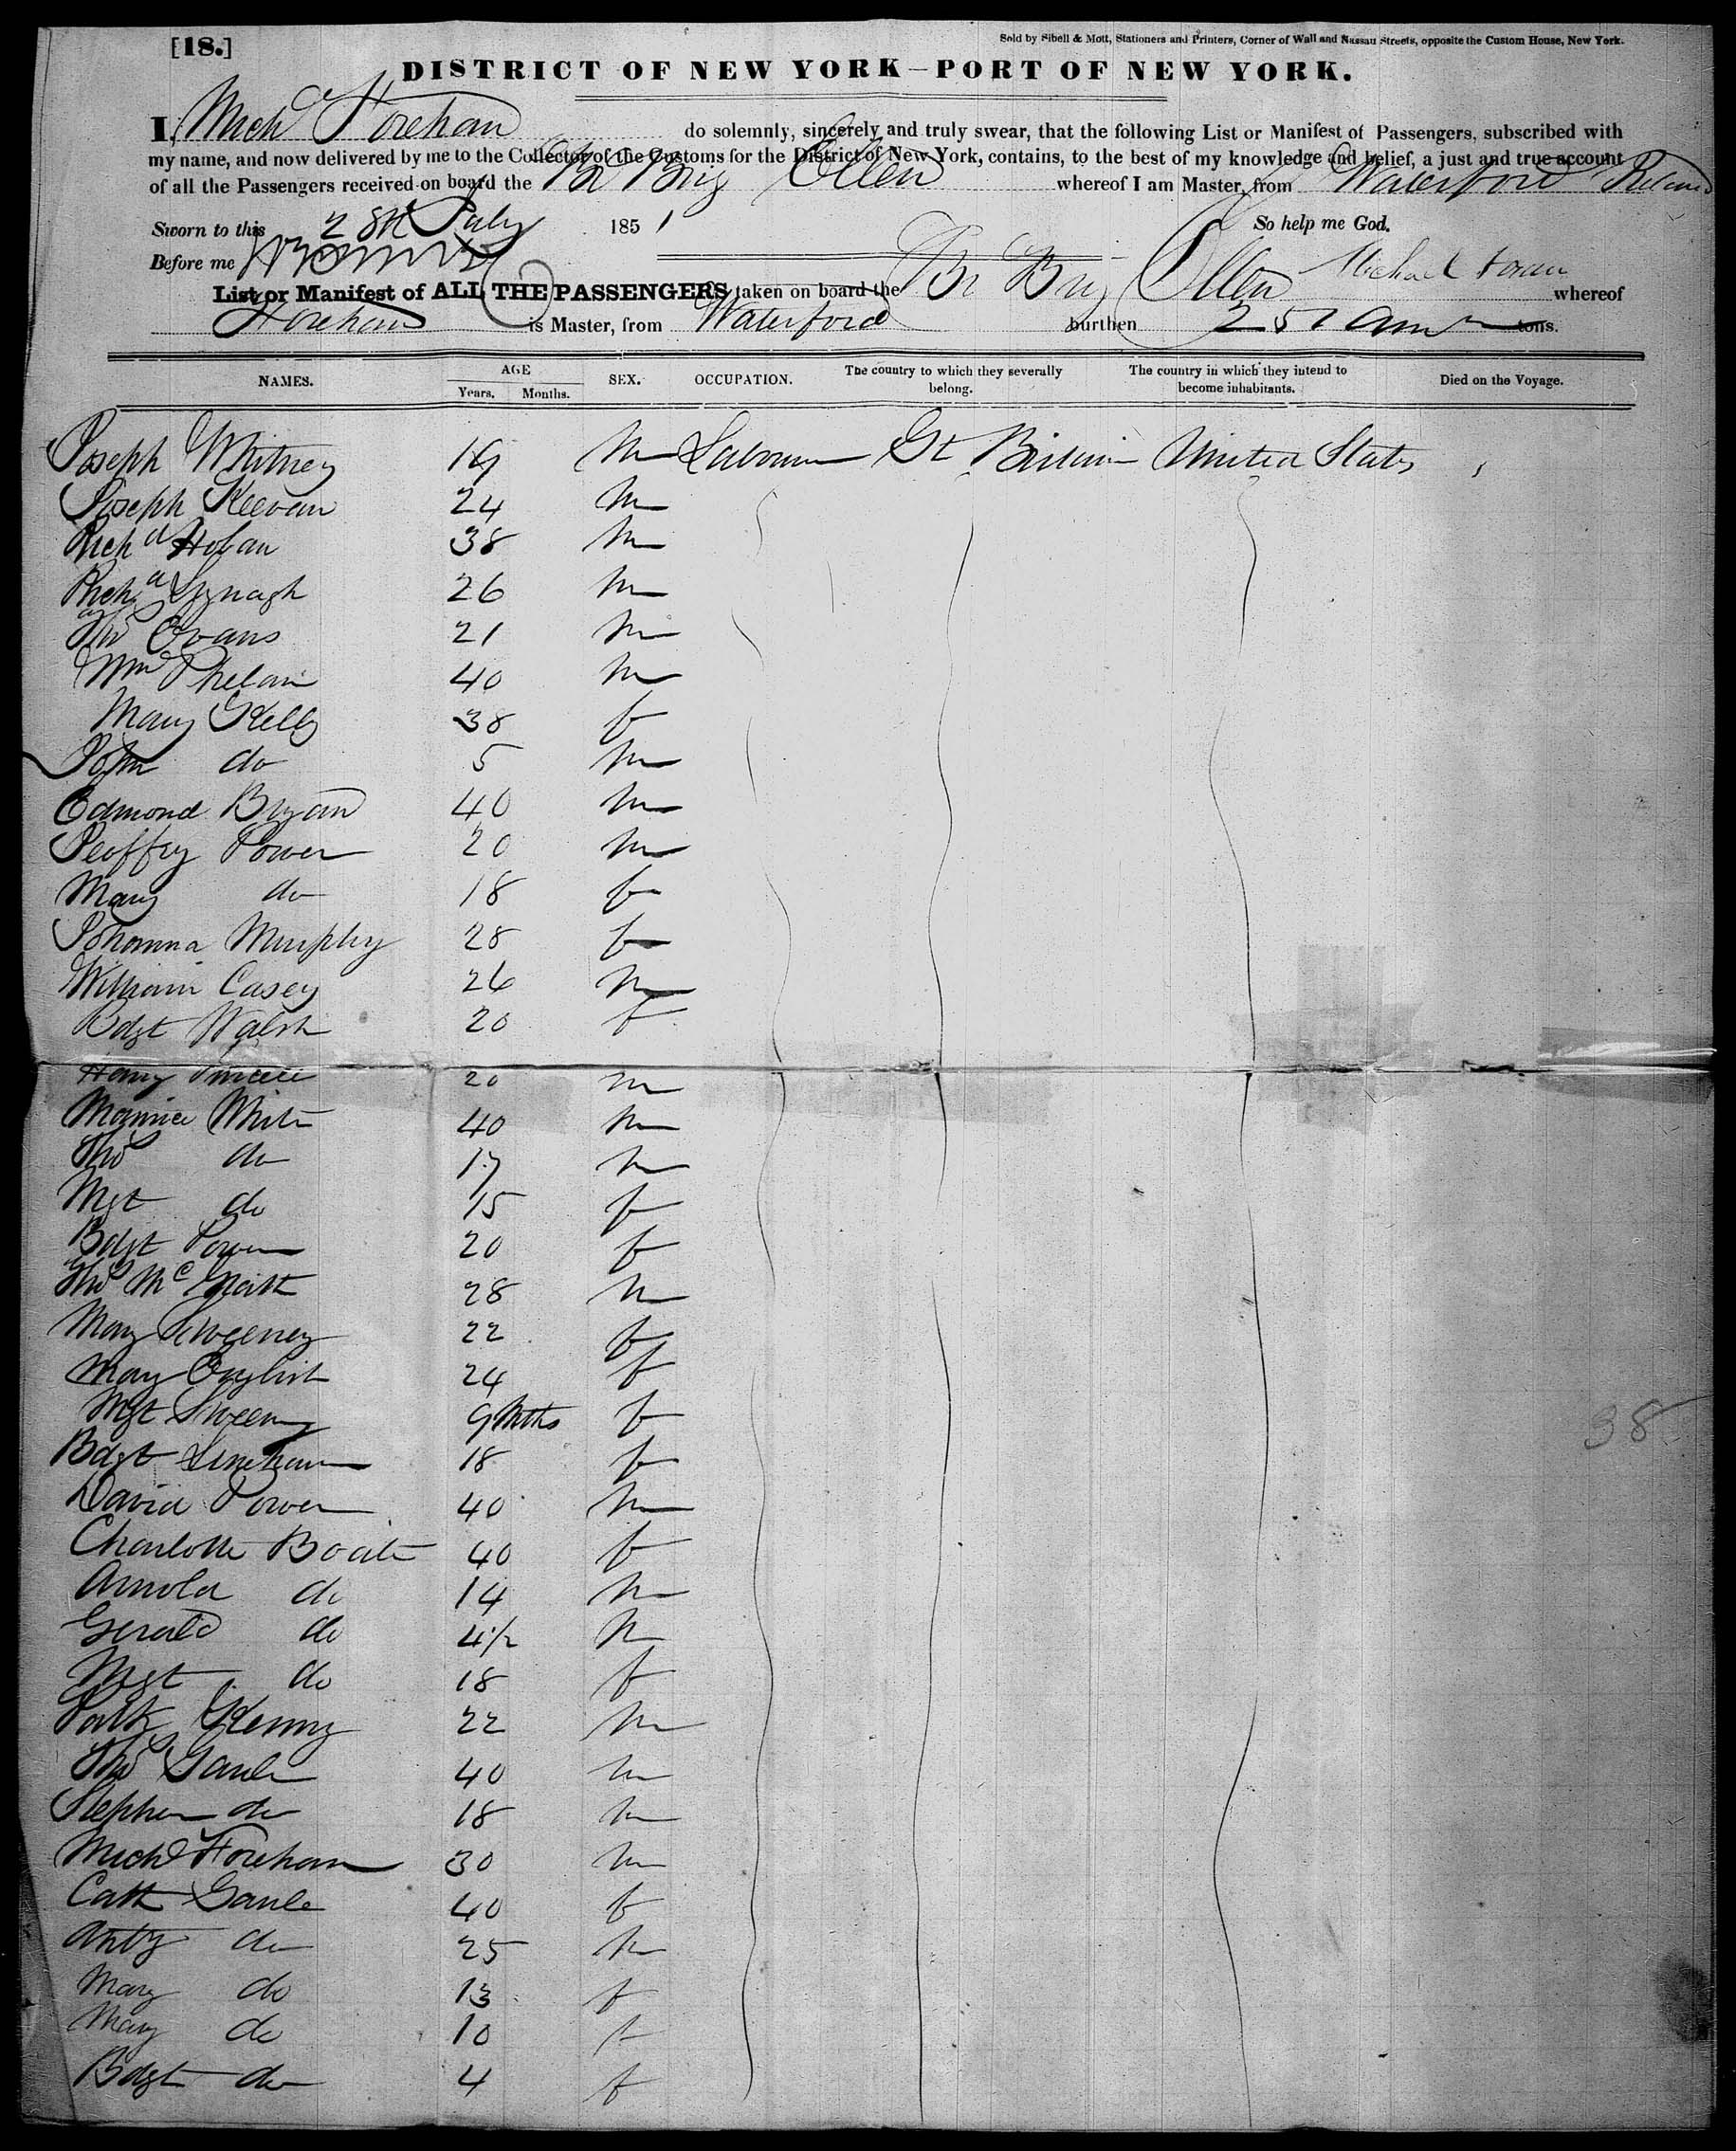 [18.]
Sold by Sibell & Mott, Stationers and Printers, Corner of Wall and Nassau Streets, opposite the Custom House, New York.
DISTRICT OF NEW YORK—PORT OF NEW YORK.
I, Michd Foreham do solemnly, sincerely and truly swear, that the following List or Manifest of Passengers, subscribed with
my name, and now delivered by me to the Collector of the Customs for the District of New York, contains, to the best of my knowledge and belief, a just and true account
of all the Passengers received on board the Br Brig Ellen whereof I am Master, from Waterford Ireland
Sworn to this 28th July 1851 So help me God.
Before me Michael Foran
List or Manifest of ALL THE PASSENGERS taken on board the Br Brig Ellen whereof
Foreham is Master, from Waterford burthen 251 tons.
NAMES. AGE Years. Months. SEX. OCCUPATION. The country to which they severally belong. The country in which they intend to become inhabitants. Died on the Voyage.
Joseph Whitney 19 m Labourer Gt Britain United States
Joseph Keevan 24 m
Richd Hoban 38 m
Richd 26 m
Thos Evans 21 m
Wm Phelan 40 m
Mary Kelly 38 f
John do 5 m
Edmond Bryan 40 m
Jeoffry Power 20 m
Mary do 18 f
Johanna Murphy 28 f
William Casey 26 m
Bdgt Walsh 20 f
Henry 20 m
Maurice White 40 m
Thos do 17 m
Mgt do 15 f
Bdgt Power 20 f
Thos McGrath 28 m
Mary Sweeney 22 f
Mary English 24 f
Mgt Sweeny 9 Mths f
38
Bdgt Linehan 18 f
David Power 40 m
Charlotte Boate 40 f
Arnold do 14 m
Gerald do 4½ m
Mgt do 18 f
Patk Kenny 22 m
Thos Gaule 40 m
Stephen do 18 m
Michl Foreham 30 m
Cath Gaule 40 f
Anty do 25 m
Mary do 13 f
Mary do 10 f
Bdgt do 4 f